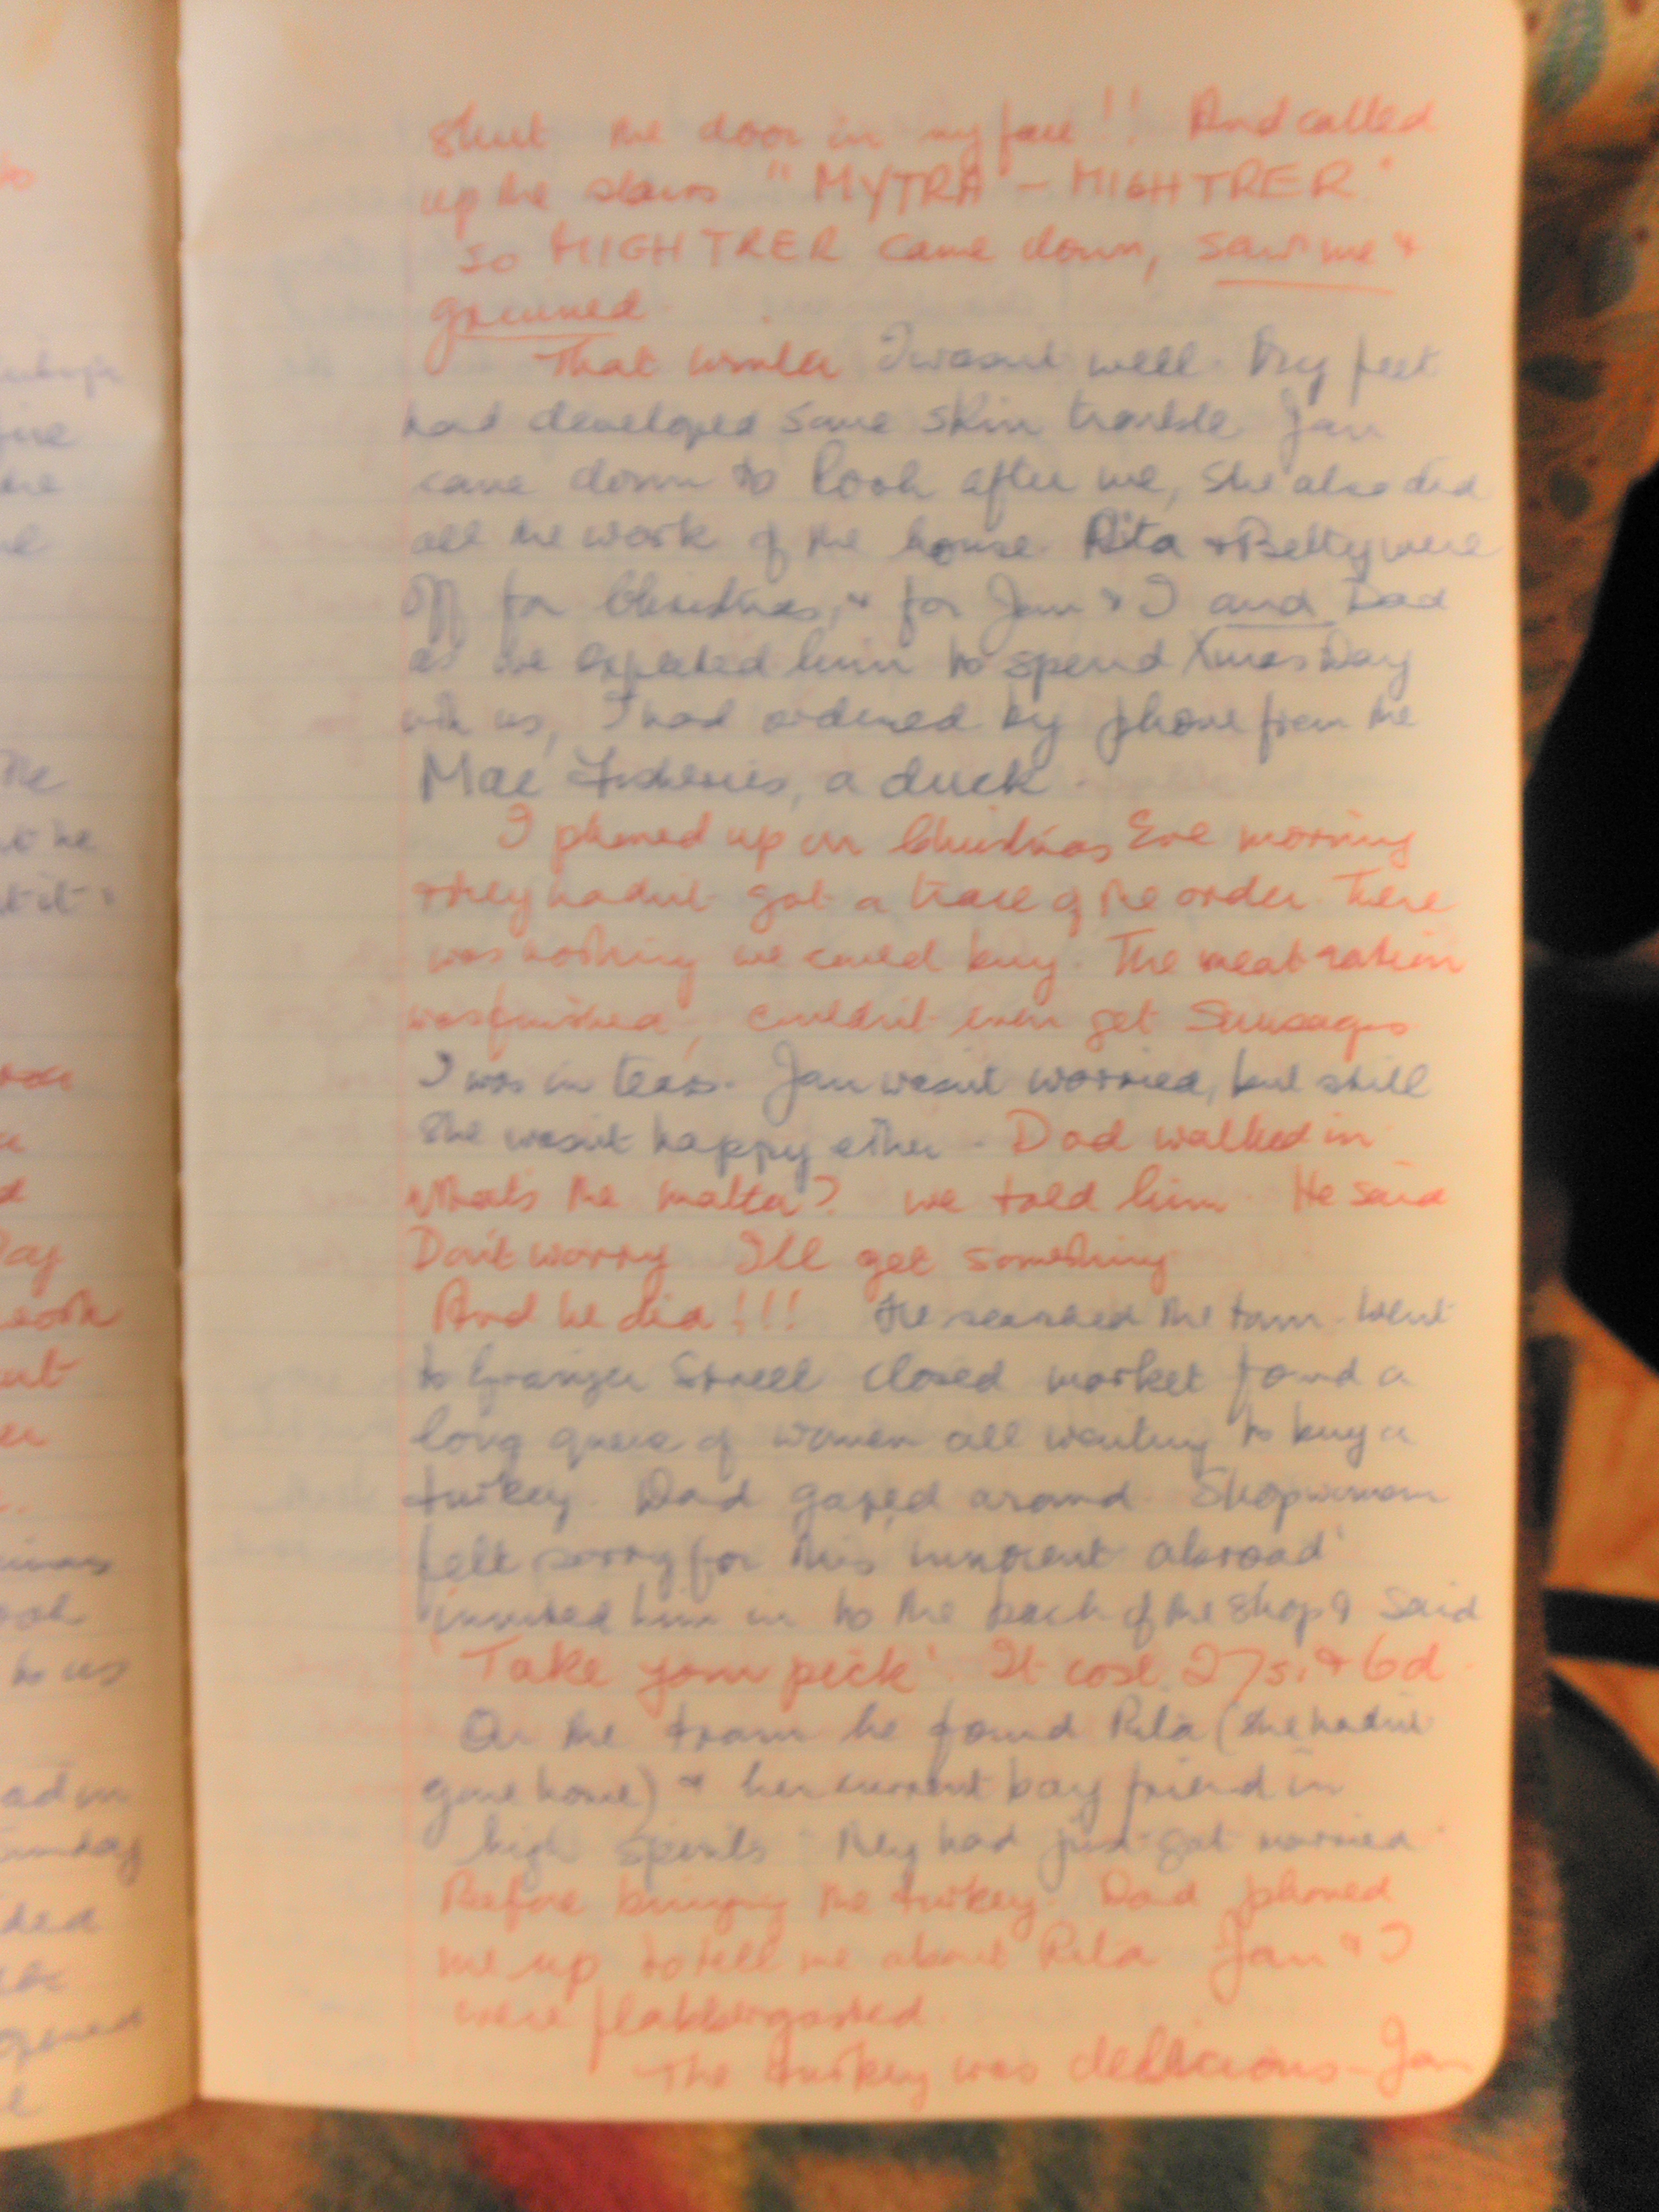 shut the door in my face!! And called
up the stairs "MYTRA - MIGHTRER"
so MIGHTRER came down, saw me &
grinned.
That winter I wasnt well. My feet
had developed some skin trouble Jan
came down to look after me, she also did
all the work of the house. Rita & Betty were
off for Christmas, & for Jan & I and Dad
as we expected him to spend Xmas Day
with us, I had ordered by phone from the
Mac Fisheries, a duck.
I phoned up on Christmas Eve morning
& they hadnt got a trace of the order. There
was nothing we could buy. The meat ration
was finished, couldnt even get Sausages
I was in tears. Jan wasnt worried, but still
she wasnt happy either - Dad walked in
Whats the matter? we told him. He said
Dont worry I'll get something
And he did!!! He searched the town. Went
to Grainger Street closed market found a
long queue of women all wanting to buy a
turkey. Dad gazed around. Shopwoman
felt sorry for this 'innocent abroad'
invited him in to the back of the shop & said
'Take your pick'. It cost 27s. & 6d.
On the tram he found Rita (she hadnt
gone home) & her current boy friend in
high spirits. They had just got married.
Before bringing the turkey. Dad phoned
me up to tell me about Rita Jan & I
were flabbergasted.
The turkey was delicious - Jan